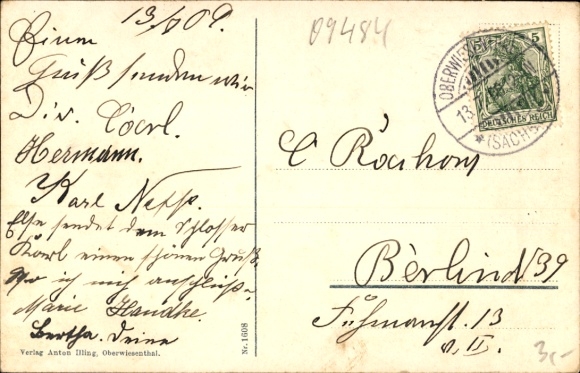 13/7 09.
Einen
Gruß senden wir
Div. Coerl.
Hermann.
Karl
Else sendet dem Schlosser
Karl einen schönen Gruß.
wo ich mich anschließe
Marie Handke.
Bertha. Deine
Verlag Anton Illing, Oberwiesenthal.
Nr. 1608
09484
5
DEUTSCHES REICH
OBERWIESENTHAL
13.
*(SACHS
C
Berlin 39
13
II.
3,-